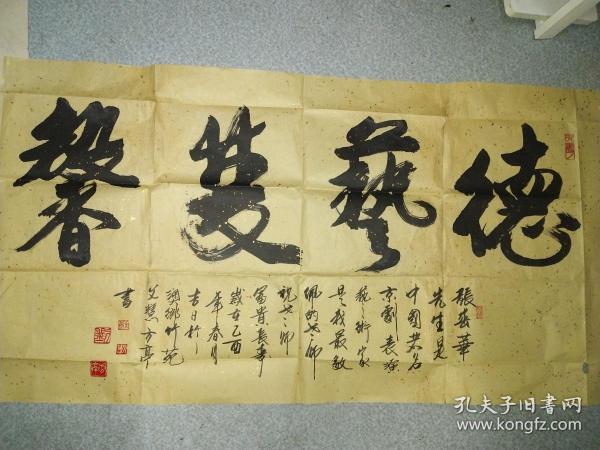 德藝雙馨
張春華
先生是
中國著名
京劇表演
藝術家
是我最敬
佩的老師
祝老師
富貴長壽
歲在乙酉
年春月
吉日於
梁鄉竹苑
文慧方亭
書
孔夫子旧书网
www.kongfz.com